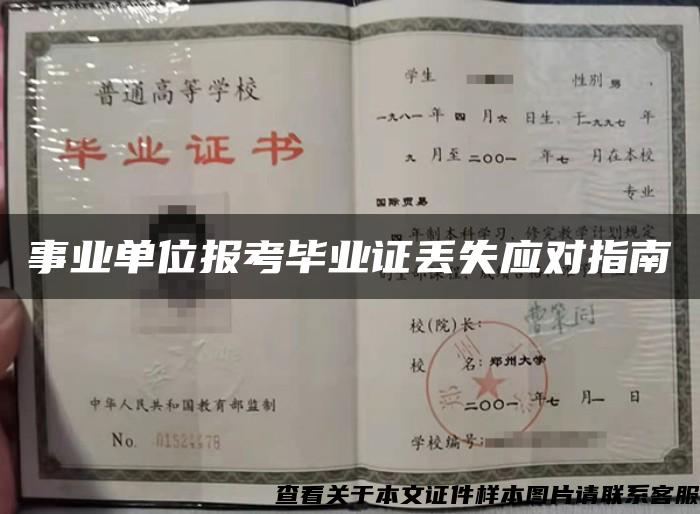 普通高等学校
毕业证书
中华人民共和国教育部监制
No. 01524478
学生 性别 男 ,
一九八一 年 四 月 六 日生、于一九九七 年
九 月至 二〇〇一 年 七 月在本校
国际贸易 专业
四 年制本科学习，修完教学计划规定
事业单位报考毕业证丢失应对指南
校(院)长：
校 名：郑州大学
二〇〇一 年 七 月 一 日
学校编号：
查看关于本文证件样本图片请联系客服